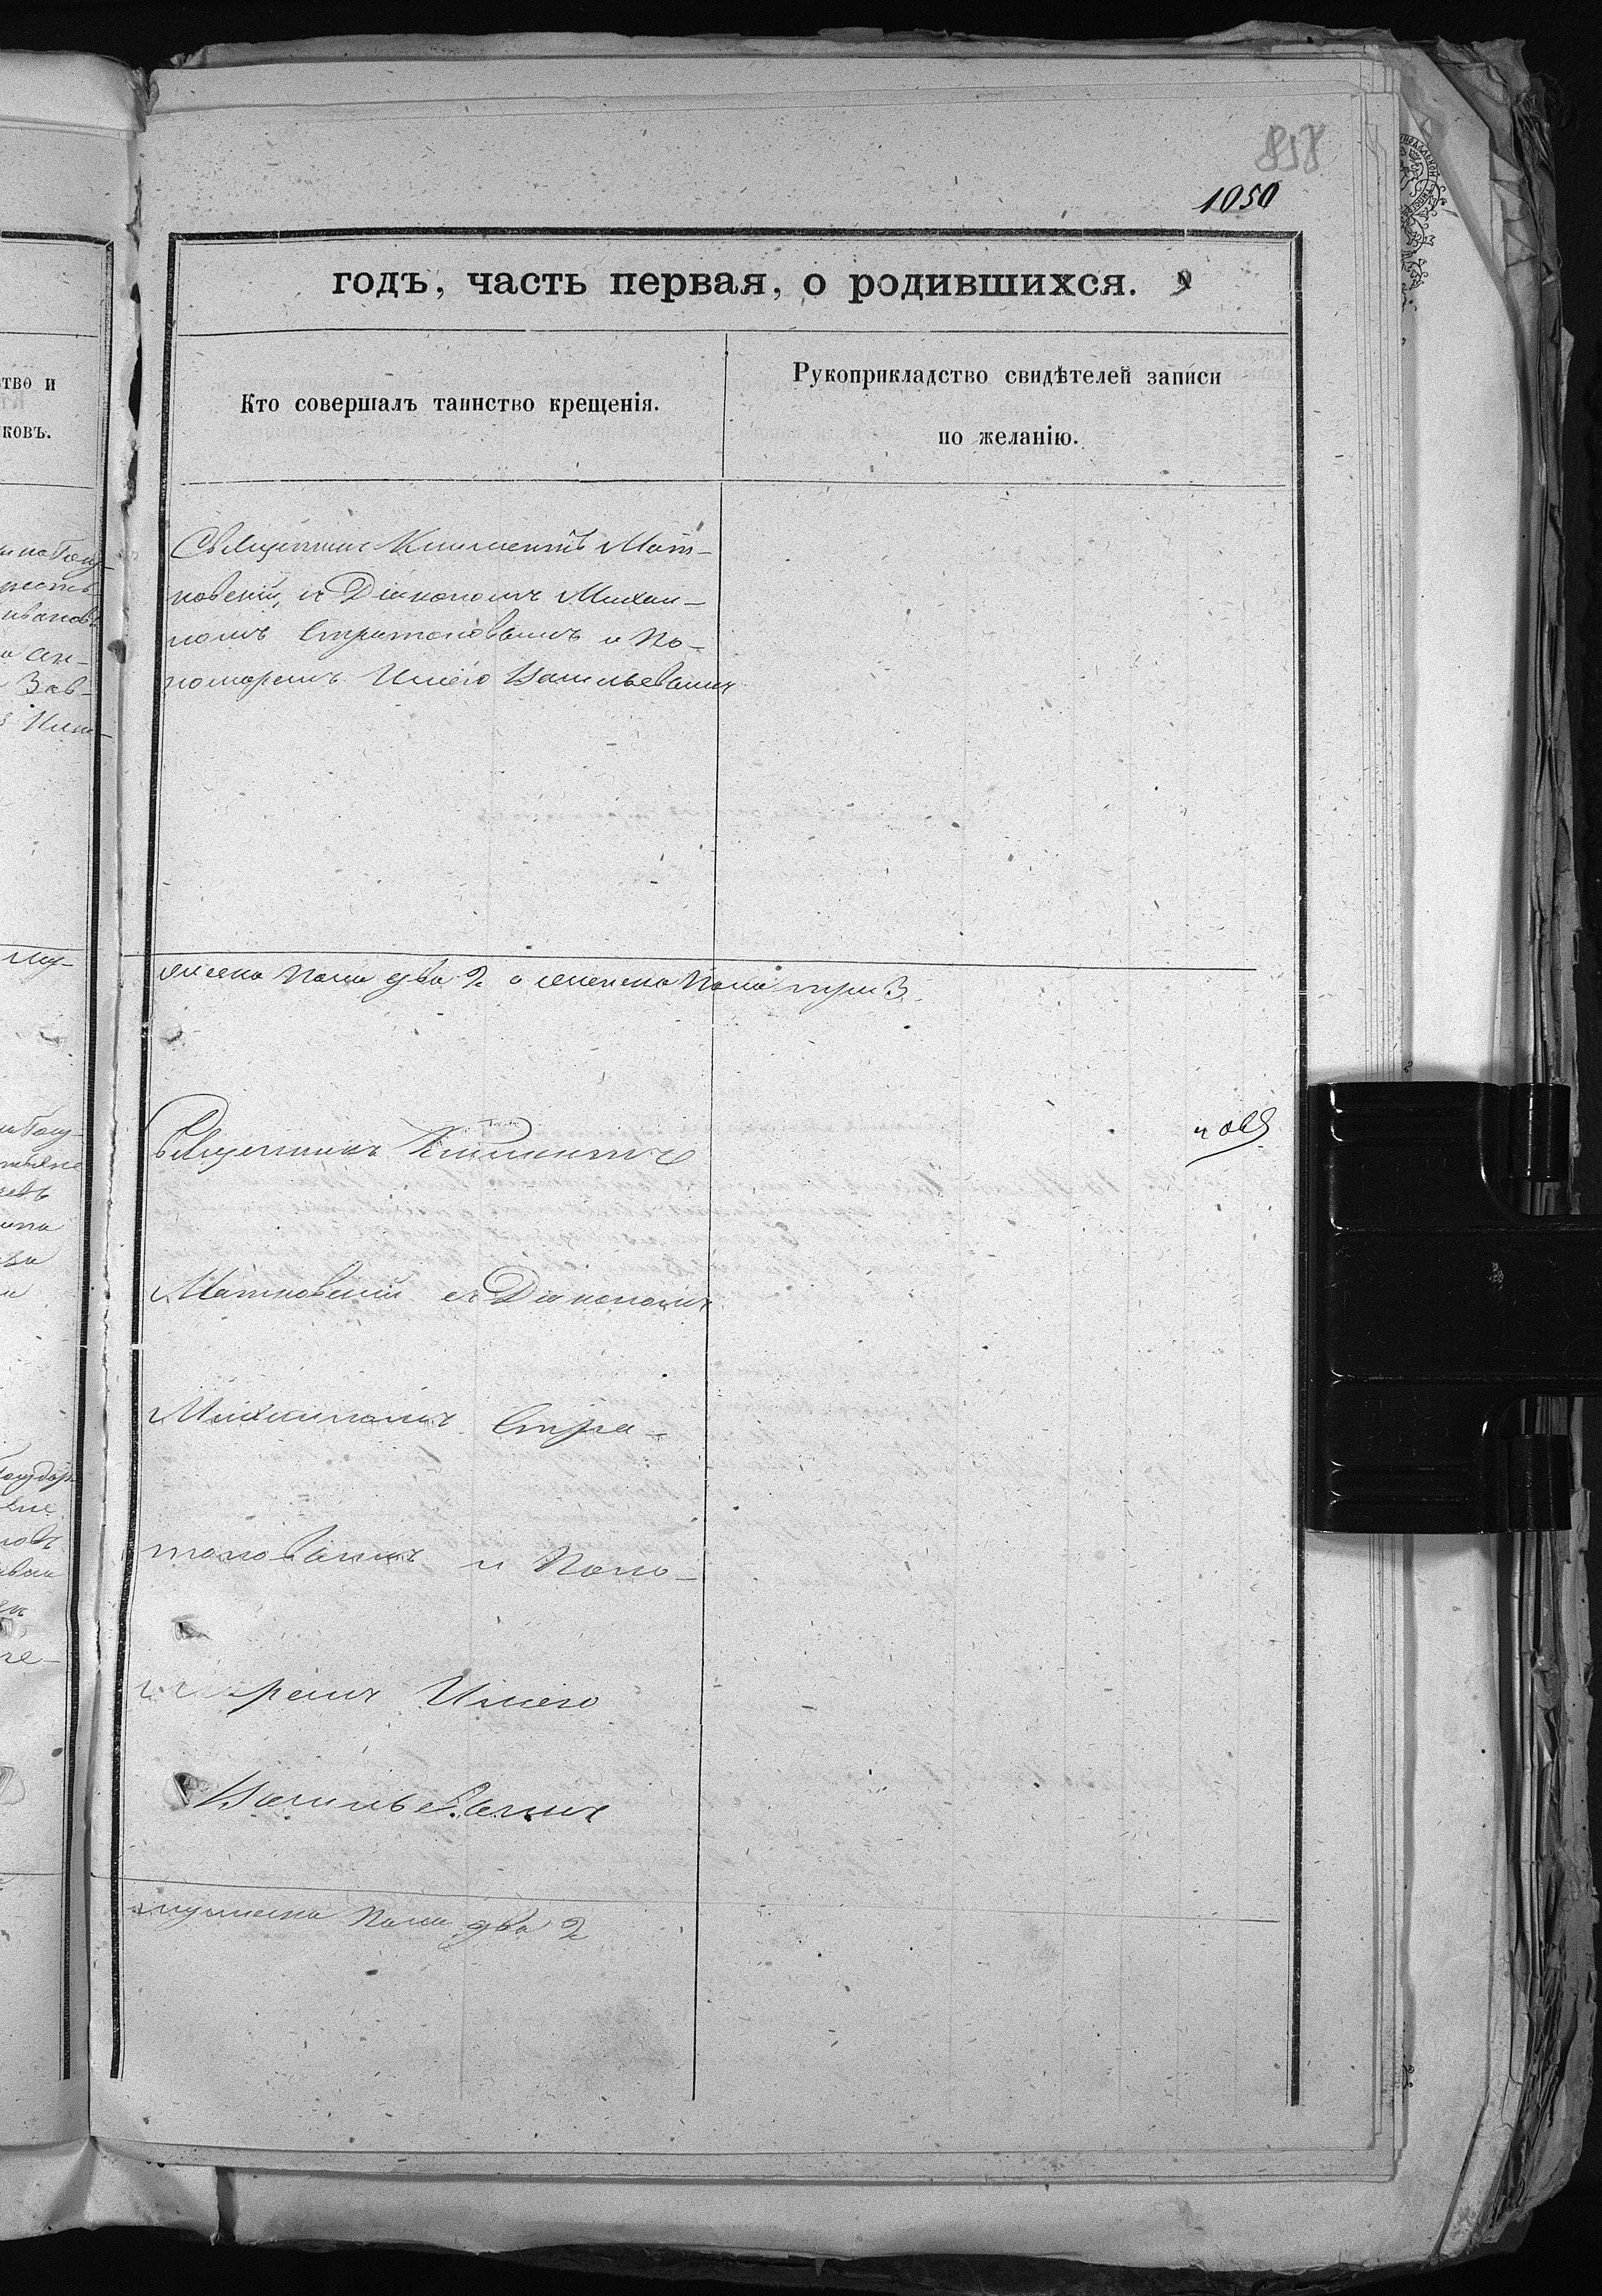 858
1050
годъ, часть первая, о родившихся.
тво и
ковъ.
Кто совершалъ таинство крещенія.
Рукоприкладство свидѣтелей записи
по желанію.
Священникъ Климентъ Мат-
ковскій, съ Діакономъ Михаи-
ломъ Стратоновымъ и По-
номаремъ Иліею Васильевымъ
Зав-
пола два 2 а женска пола три 3.
Священникъ Климентъ
Матковскій съ Діакономъ
Михаиломъ Стра-
тоновымъ и Поно-
маремъ Иліею
Васильевымъ
мужеска пола два 2